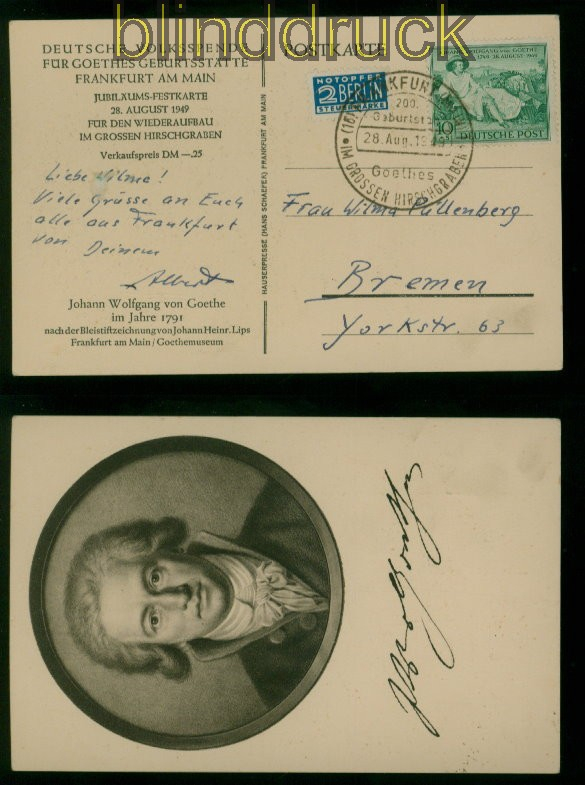 blinddruck
DEUTSCHE VOLKSSPENDE
FÜR GOETHES GEBURTSSTÄTTE
FRANKFURT AM MAIN
JUBILÄUMS-FESTKARTE
28. AUGUST 1949
FÜR DEN WIEDERAUFBAU
IM GROSSEN HIRSCHGRABEN
Verkaufspreis DM —.25
Liebe Wilma!
Viele Grüsse an Euch
alle aus Frankfurt
von Deinem
Albert
Johann Wolfgang von Goethe
im Jahre 1791
nach der Bleistiftzeichnung von Johann Heinr. Lips
Frankfurt am Main / Goethemuseum
HAUSERPRESSE (HANS SCHAEFER) FRANKFURT AM MAIN
POSTKARTE
NOTOPFER
2 BERLIN
STEUERMARKE
(16) FRANKFURT
200.
Geburtst
28. Aug. 19
Goethes
IM GROSSEN HIRSCHGRABEN
WOLFGANG VON GOETHE
28. AUGUST 1949
10
DEUTSCHE POST
Frau Wilma Püllenberg
Bremen
Yorkstr. 63